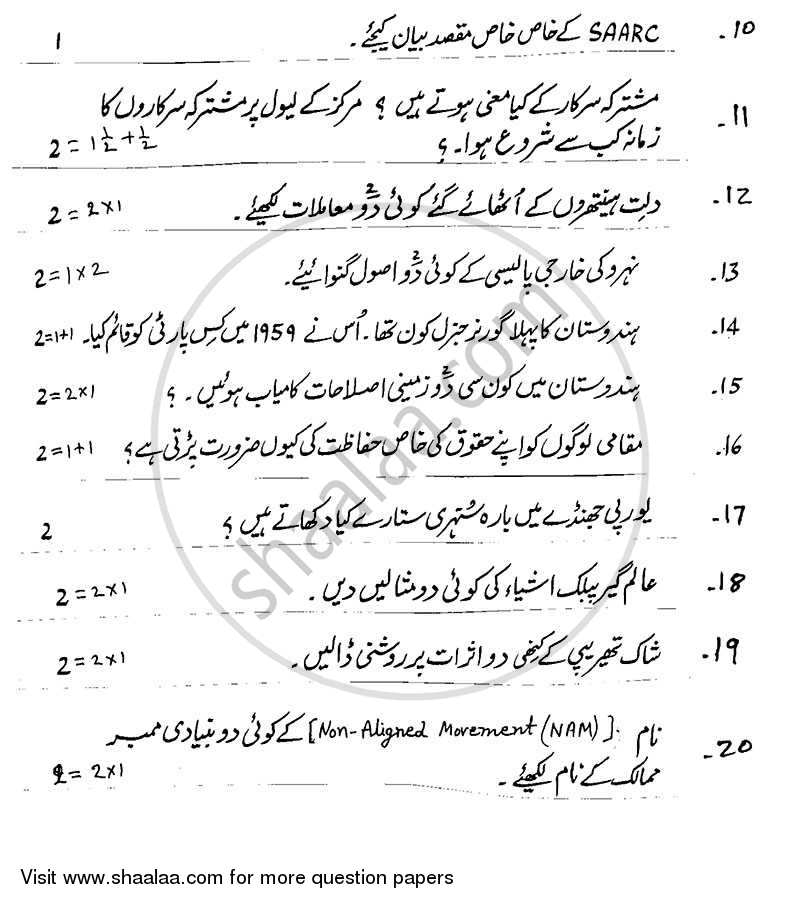 10- SAARC کے خاص خاص مقصد بیان کیجئے۔ 1
11- مشترکہ سرکار کے کیا معنی ہوتے ہیں ؟ مرکز کے لیول پر مشترکہ سرکاروں کا
زمانہ کب سے شروع ہوا۔ ؟ 2 = 1 1/2 + 1/2
12- دلِت پینتھروں کے اُٹھائے گئے کوئی دو 2 معاملات لکھیئے۔ 2 = 2×1
13- نہرو کی خارجی پالیسی کے کوئی دو 2 اصول گنوائیے۔ 2=1×2
14- ہندوستان کا پہلا گورنر جنرل کون تھا۔ اُس نے 1959 میں کس پارٹی کو قائم کیا۔ 2=1+1
15- ہندوستان میں کون سی دو 2 زمینی اصلاحات کامیاب ہوئیں۔ ؟ 2=2×1
16- مقامی لوگوں کو اپنے حقوق کی خاص حفاظت کی کیوں ضرورت پڑتی ہے؟ 2=1+1
17- یورپی جھنڈے میں بارہ سُنہری ستارے کیا دکھاتے ہیں ؟ 2
18- عالم گیر پبلک اشیاء کی کوئی دو مثالیں دیں۔ 2=2×1
19- شاک تھریپی کے کِنھی دو اثرات پر روشنی ڈالیں۔ 2=2×1
20- نام [Non-Aligned Movement (NAM)] کے کوئی دو بنیادی ممبر
ممالک کے نام لکھیئے۔ 2=2×1
shaalaa.com
Visit www.shaalaa.com for more question papers